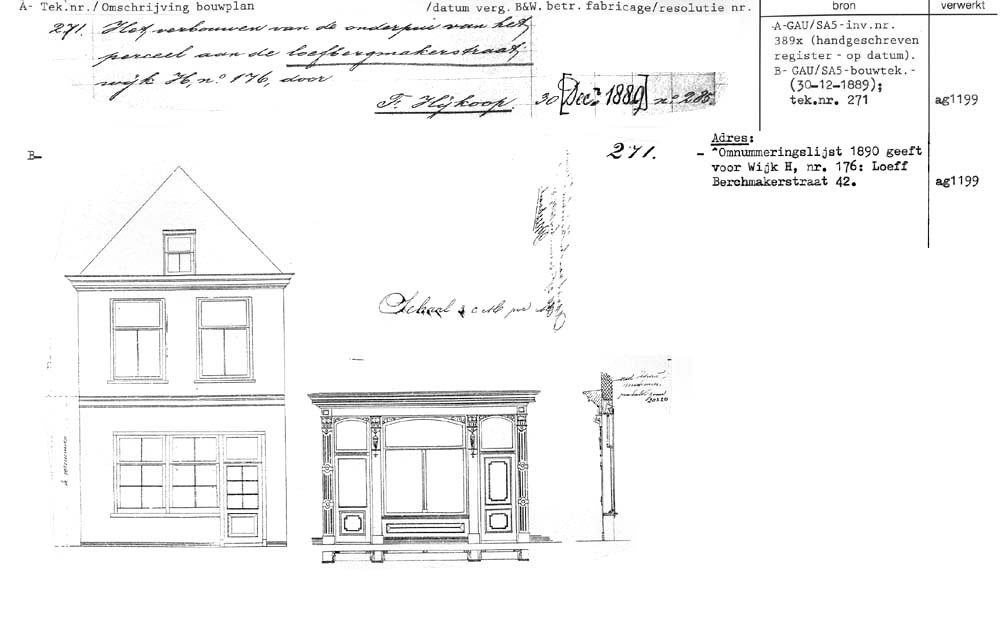 A- Tek.nr./Omschrijving bouwplan /datum verg. B&W. betr. fabricage/resolutie nr.
bron
verwerkt
271. Het verbouwen van de onderpui van het
perceel aan de loefbergmakerstraat
wijk H, no. 176, door
F. Hijkoop. 30 [Decr. 1889] no. 285.
A-GAU/SA5-inv.nr.
389x (handgeschreven
register - op datum).
B- GAU/SA5-bouwtek.-
(30-12-1889);
tek.nr. 271
ag1199
Adres:
- ^Omnummeringslijst 1890 geeft
voor Wijk H, nr. 176: Loeff
Berchmakerstraat 42.
ag1199
B-
271.
Schaal